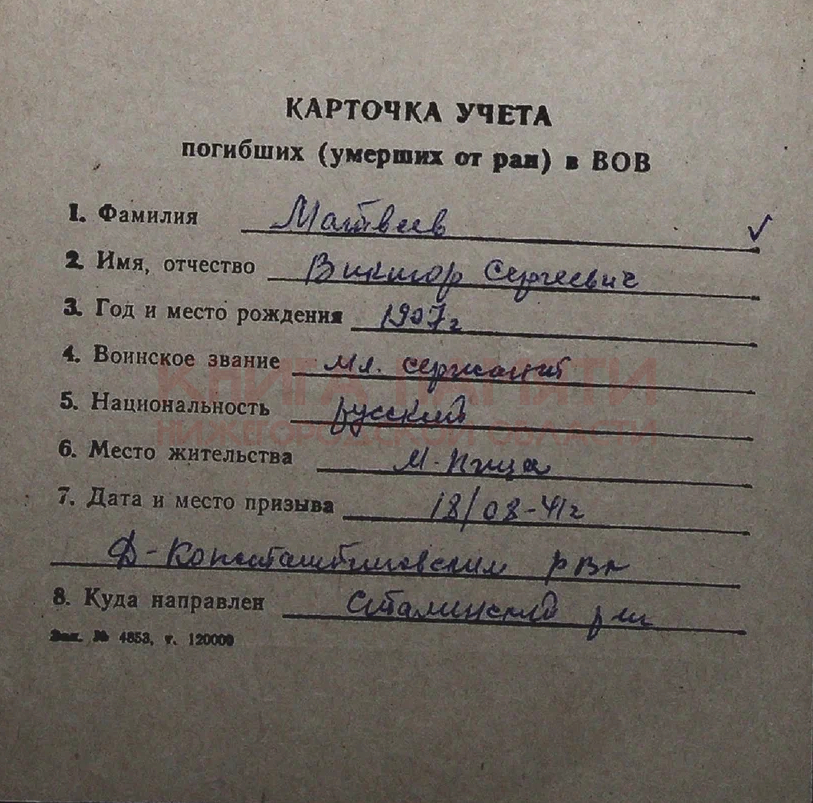 КАРТОЧКА УЧЕТА
погибших (умерших от ран) в ВОВ
1. Фамилия Матвеев
2. Имя, отчество Виктор Сергеевич
3. Год и место рождения 1907 г
4. Воинское звание мл. сержант
КНИГА ПАМЯТИ
5. Национальность русский
НИЖЕГОРОДСКОЙ ОБЛАСТИ
6. Место жительства М-Пица
7. Дата и место призыва 18/08-41 г
Д-Константиновским рвк
8. Куда направлен Сталинский
Зак. № 4853, т. 120000